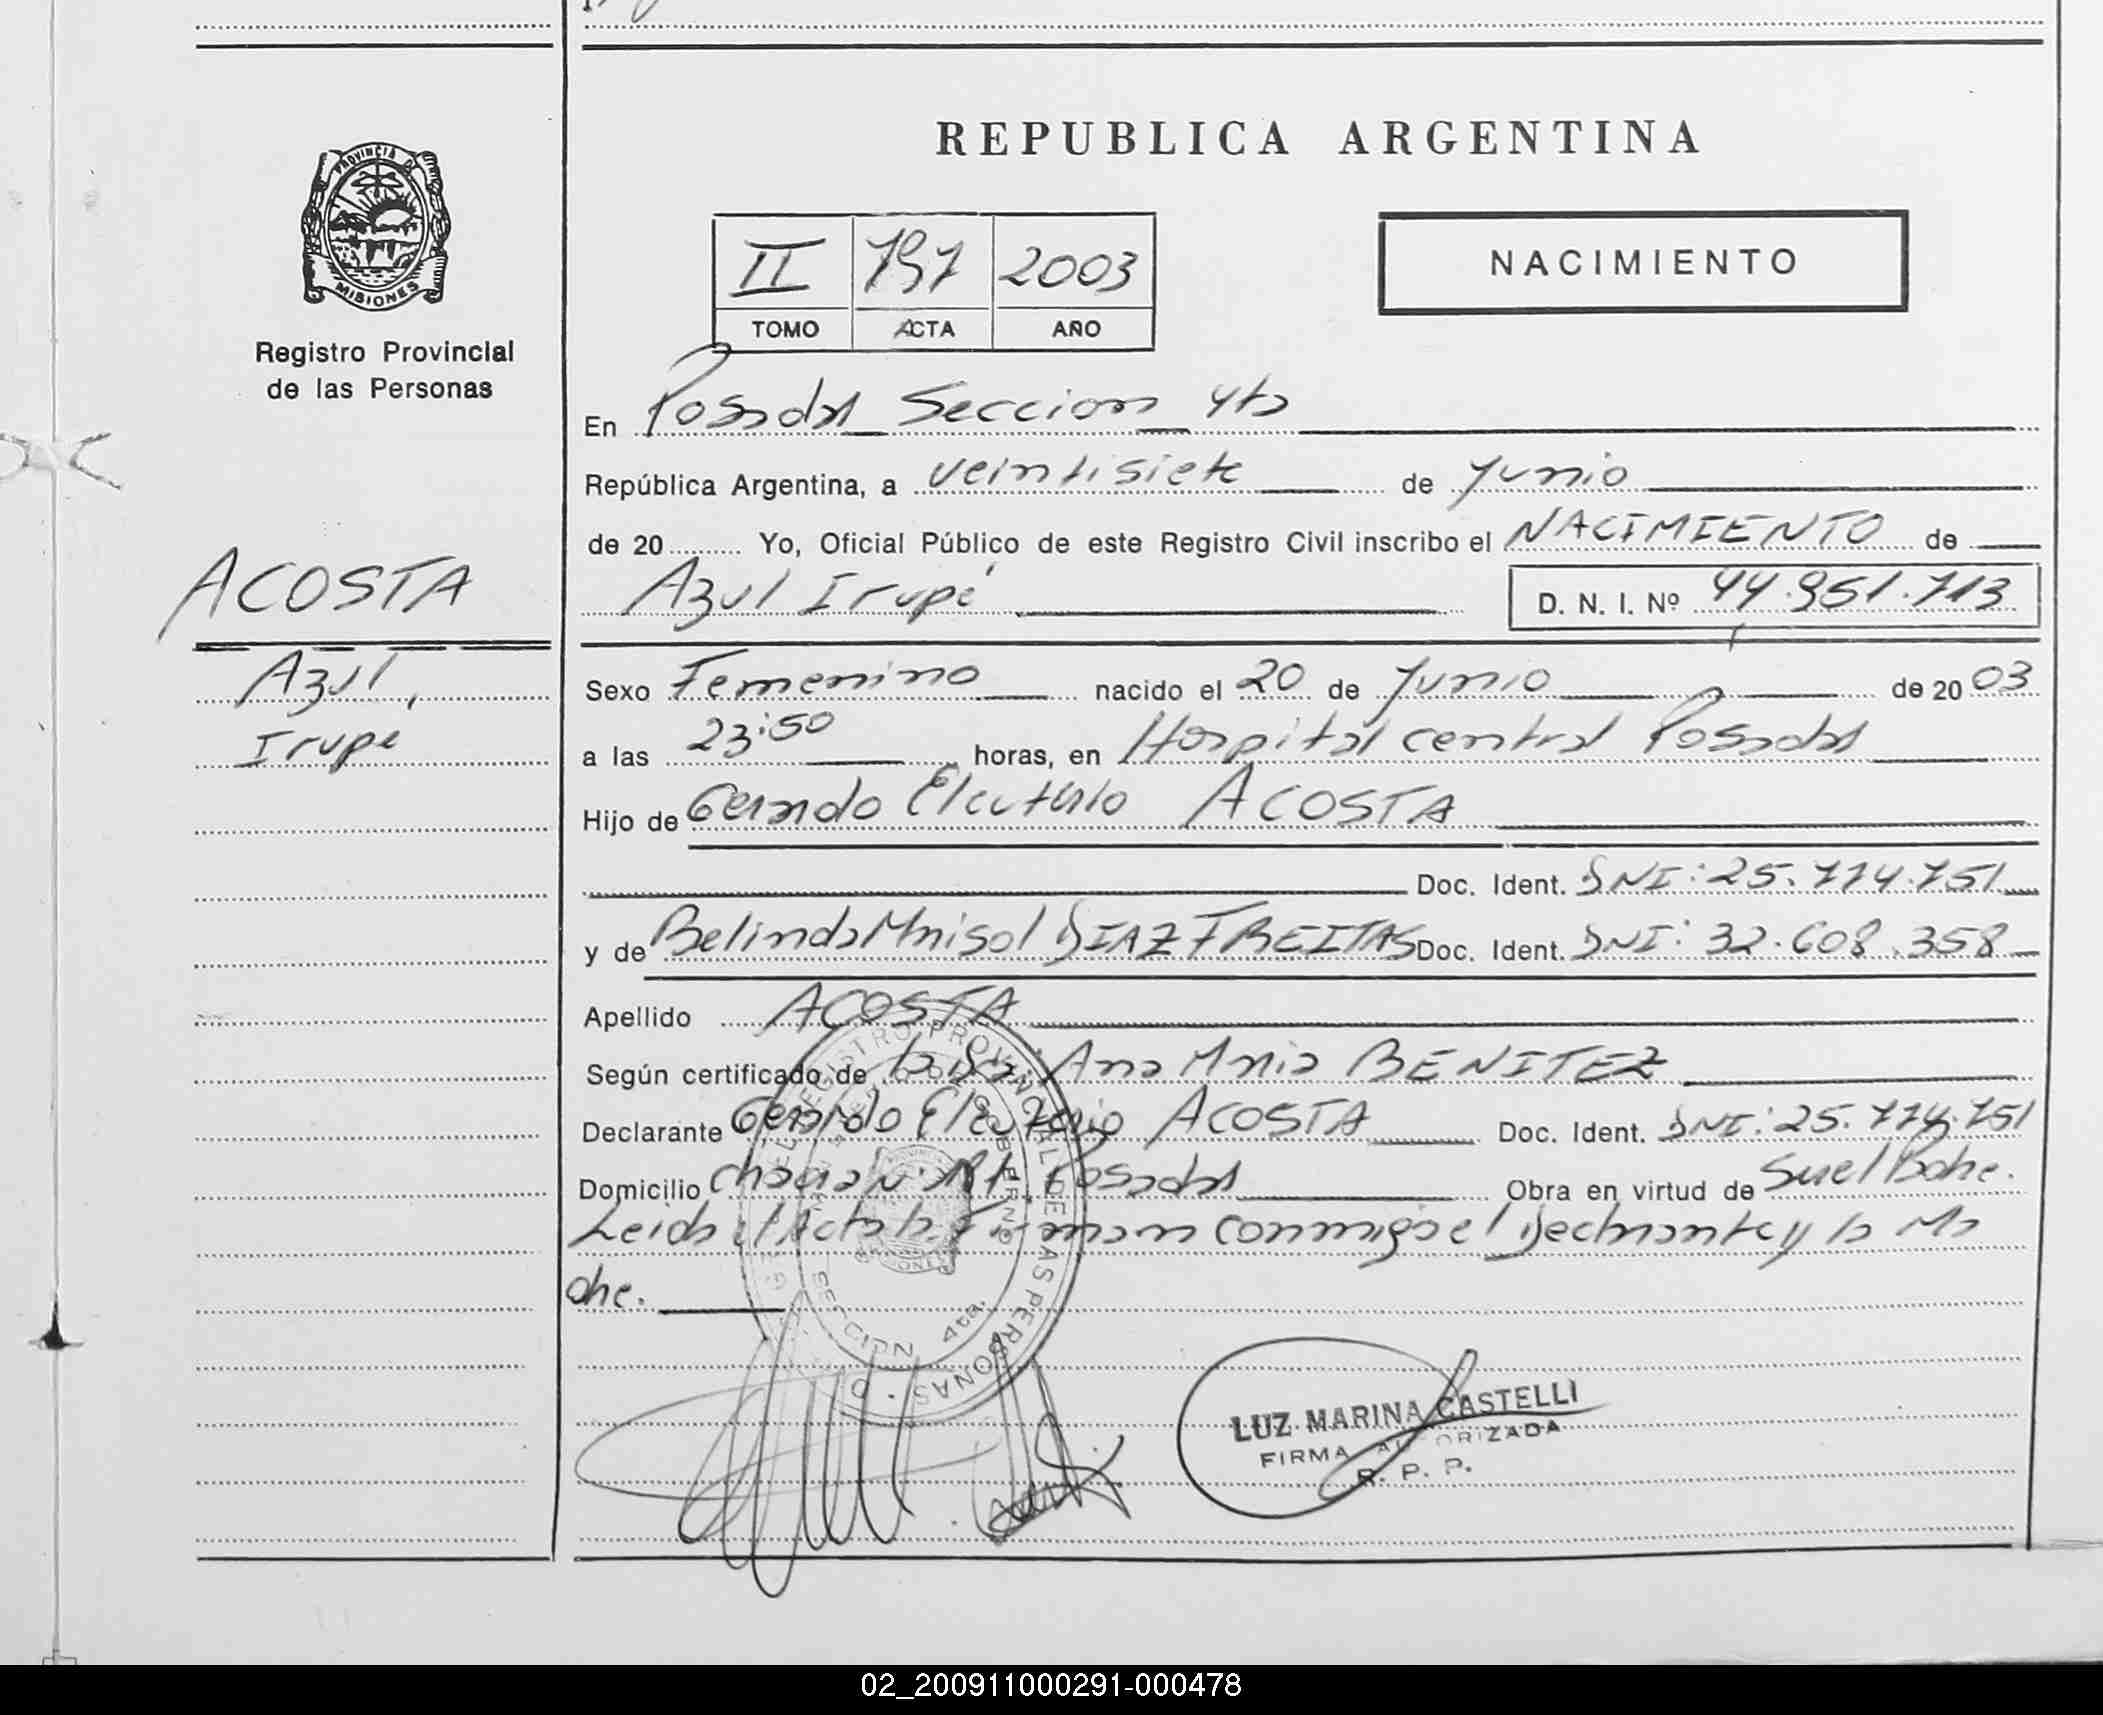 REPUBLICA ARGENTINA
PROVINCIA DE MISIONES
Registro Provincial
de las Personas
II 797 2003
TOMO ACTA AÑO
NACIMIENTO
En Posadas Seccion 4ta
República Argentina, a veintisiete de Junio
de 20 Yo, Oficial Público de este Registro Civil inscribo el NACIMIENTO de
ACOSTA
Azul Irupé D. N. I. Nº 44.951.713
Azul,
Irupé
Sexo Femenino nacido el 20 de Junio de 20 03
a las 23:50 horas, en Hospital central Posadas
Hijo de Gerardo Eleuterio ACOSTA
Doc. Ident. DNI: 25.774.751
y de Belinda Marisol DIAZ FREITAS Doc. Ident. DNI: 32.608.358
Apellido ACOSTA
Según certificado de la Dra. Ana Maria BENITEZ
Declarante Gerardo Eleuterio ACOSTA Doc. Ident. DNI: 25.774.751
Domicilio Posadas Obra en virtud de Ser el Padre.
Leida el Acta la Firman conmigo el Declarante y la Ma
dre.
REGISTRO PROVINCIAL DE LAS PERSONAS
SECCION 4ta.
LUZ MARINA CASTELLI
FIRMA AUTORIZADA
R. P. P.
02_200911000291-000478